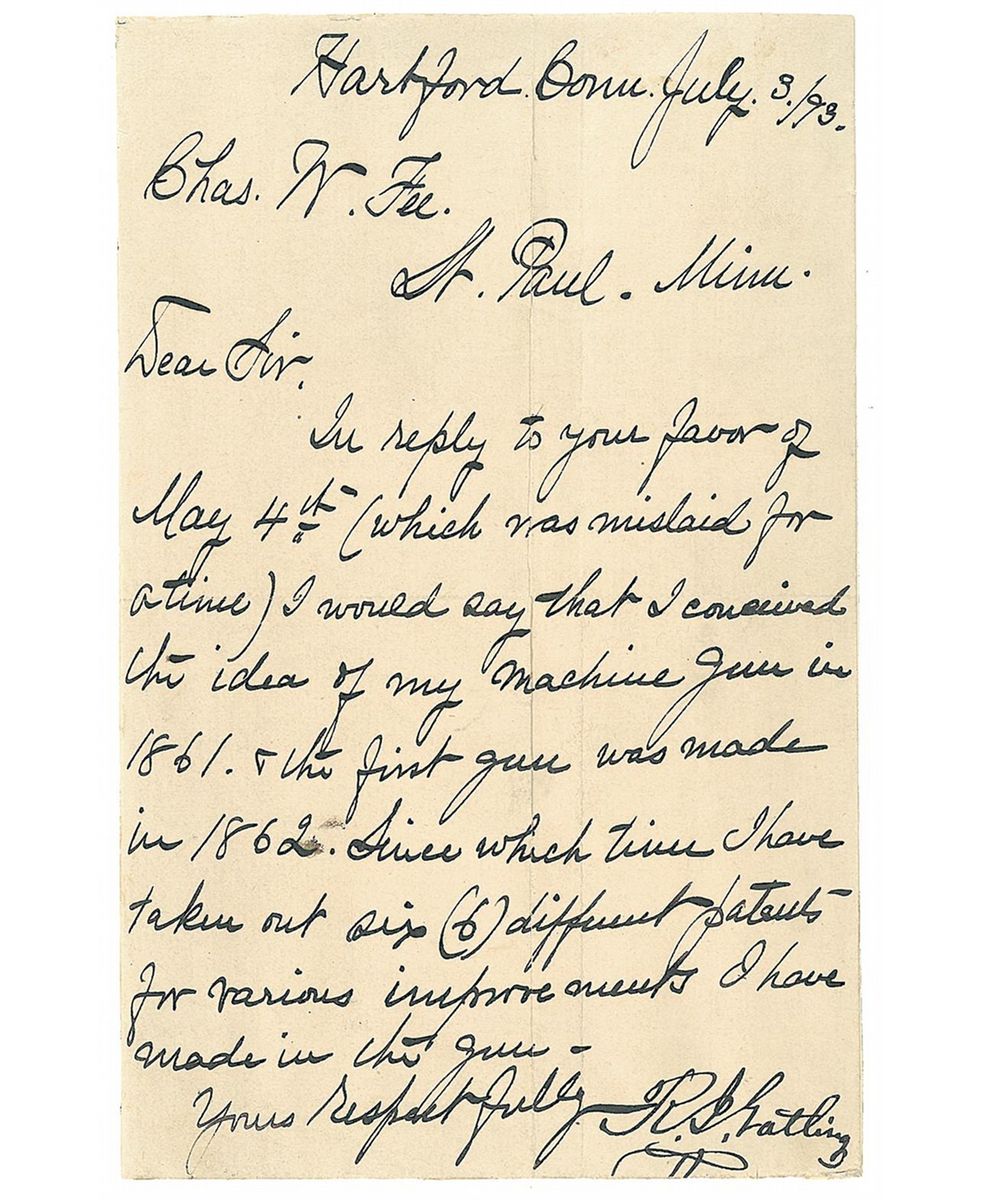 Hartford. Conn. July. 3./93.
Chas. W. Fee.
St. Paul. Minn.
Dear Sir.
In reply to your favor of
May 4th (which was mislaid for
a time) I would say that I conceived
the idea of my machine gun in
1861. & the first gun was made
in 1862. Since which time I have
taken out six (6) different patents
for various improvements I have
made in the gun -
Yours respectfully R. J. Gatling